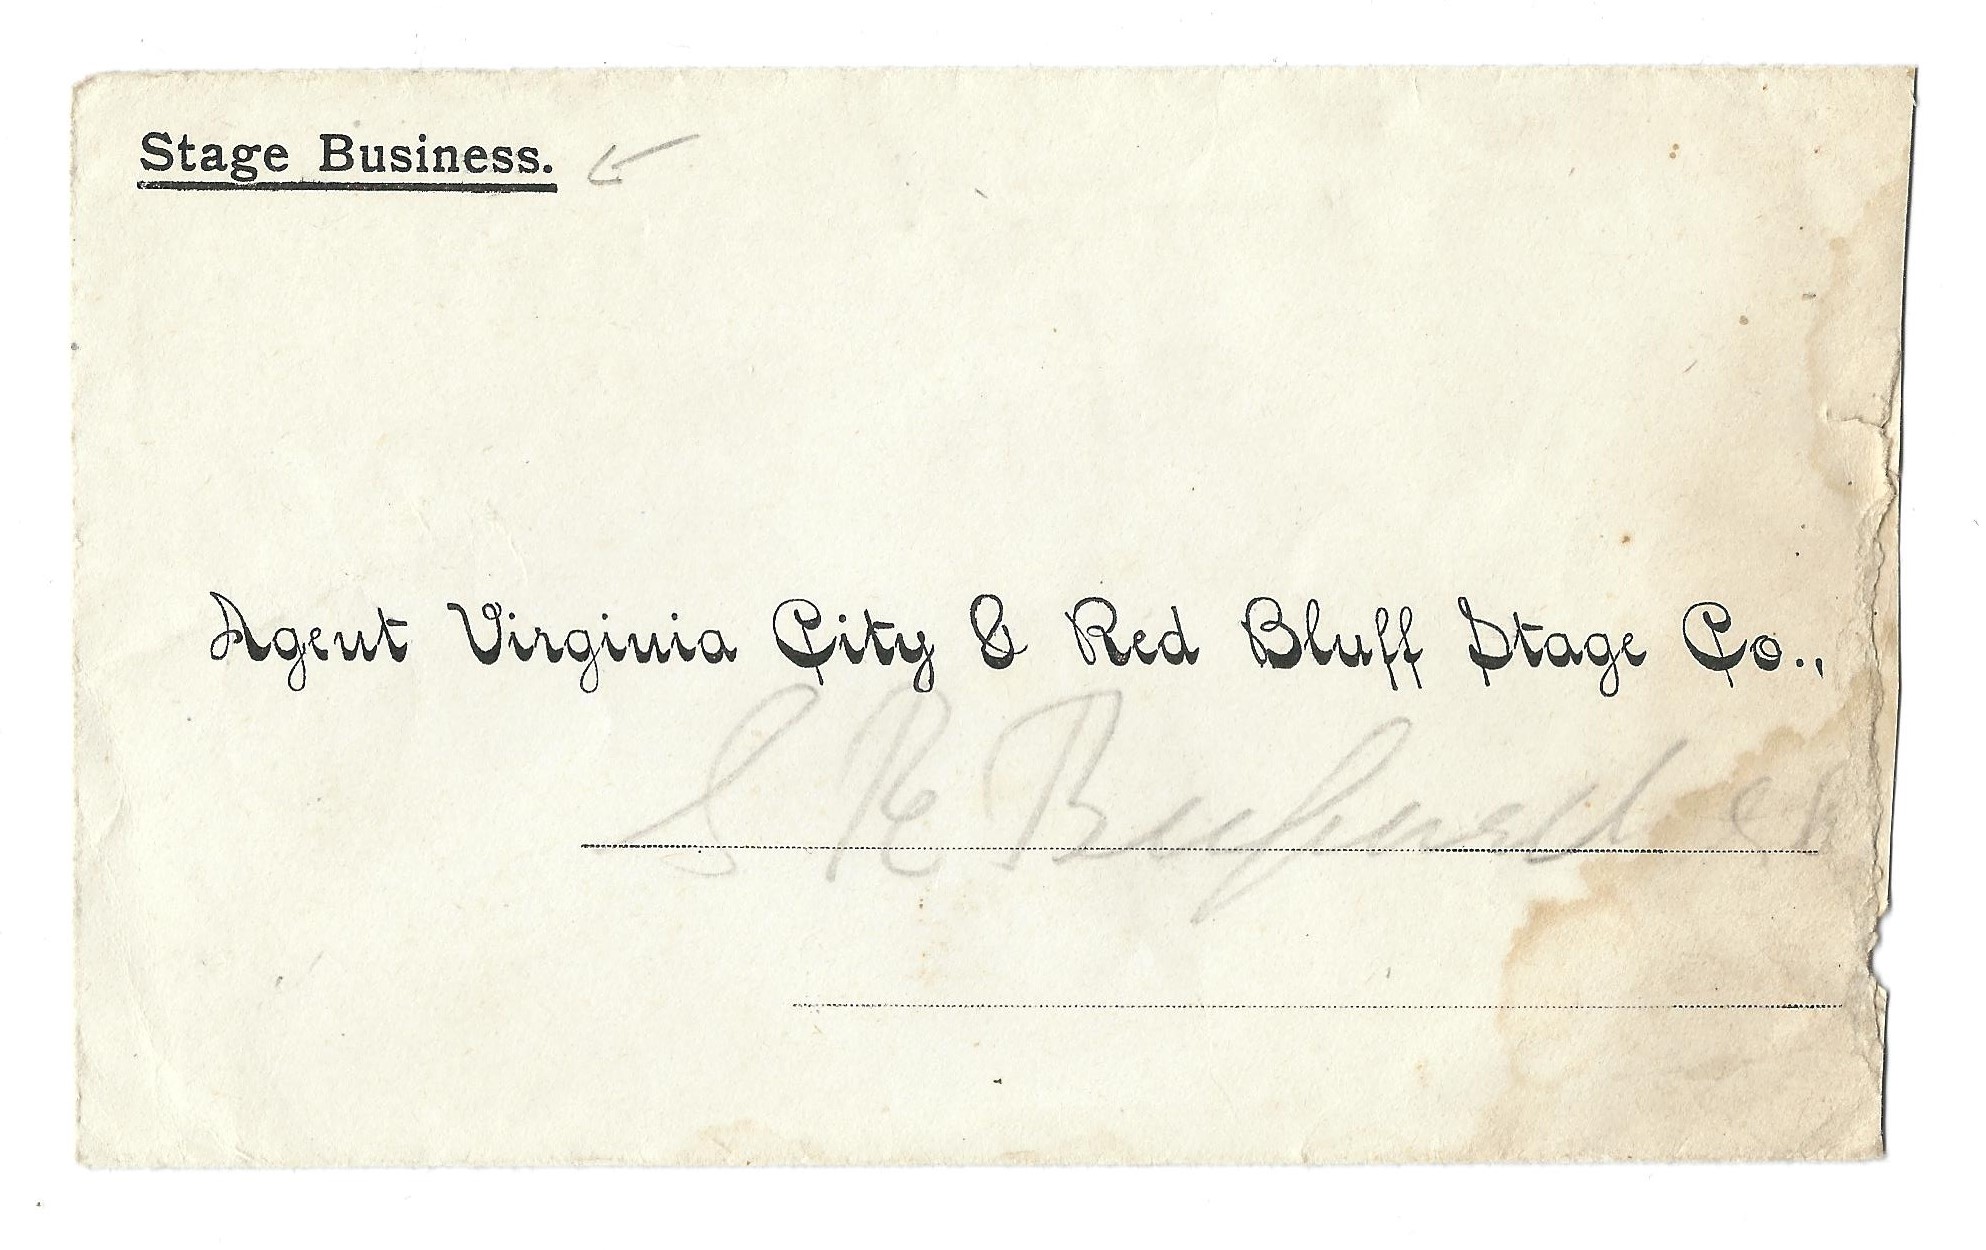 Stage Business.
Agent Virginia City & Red Bluff Stage Co.,
S R